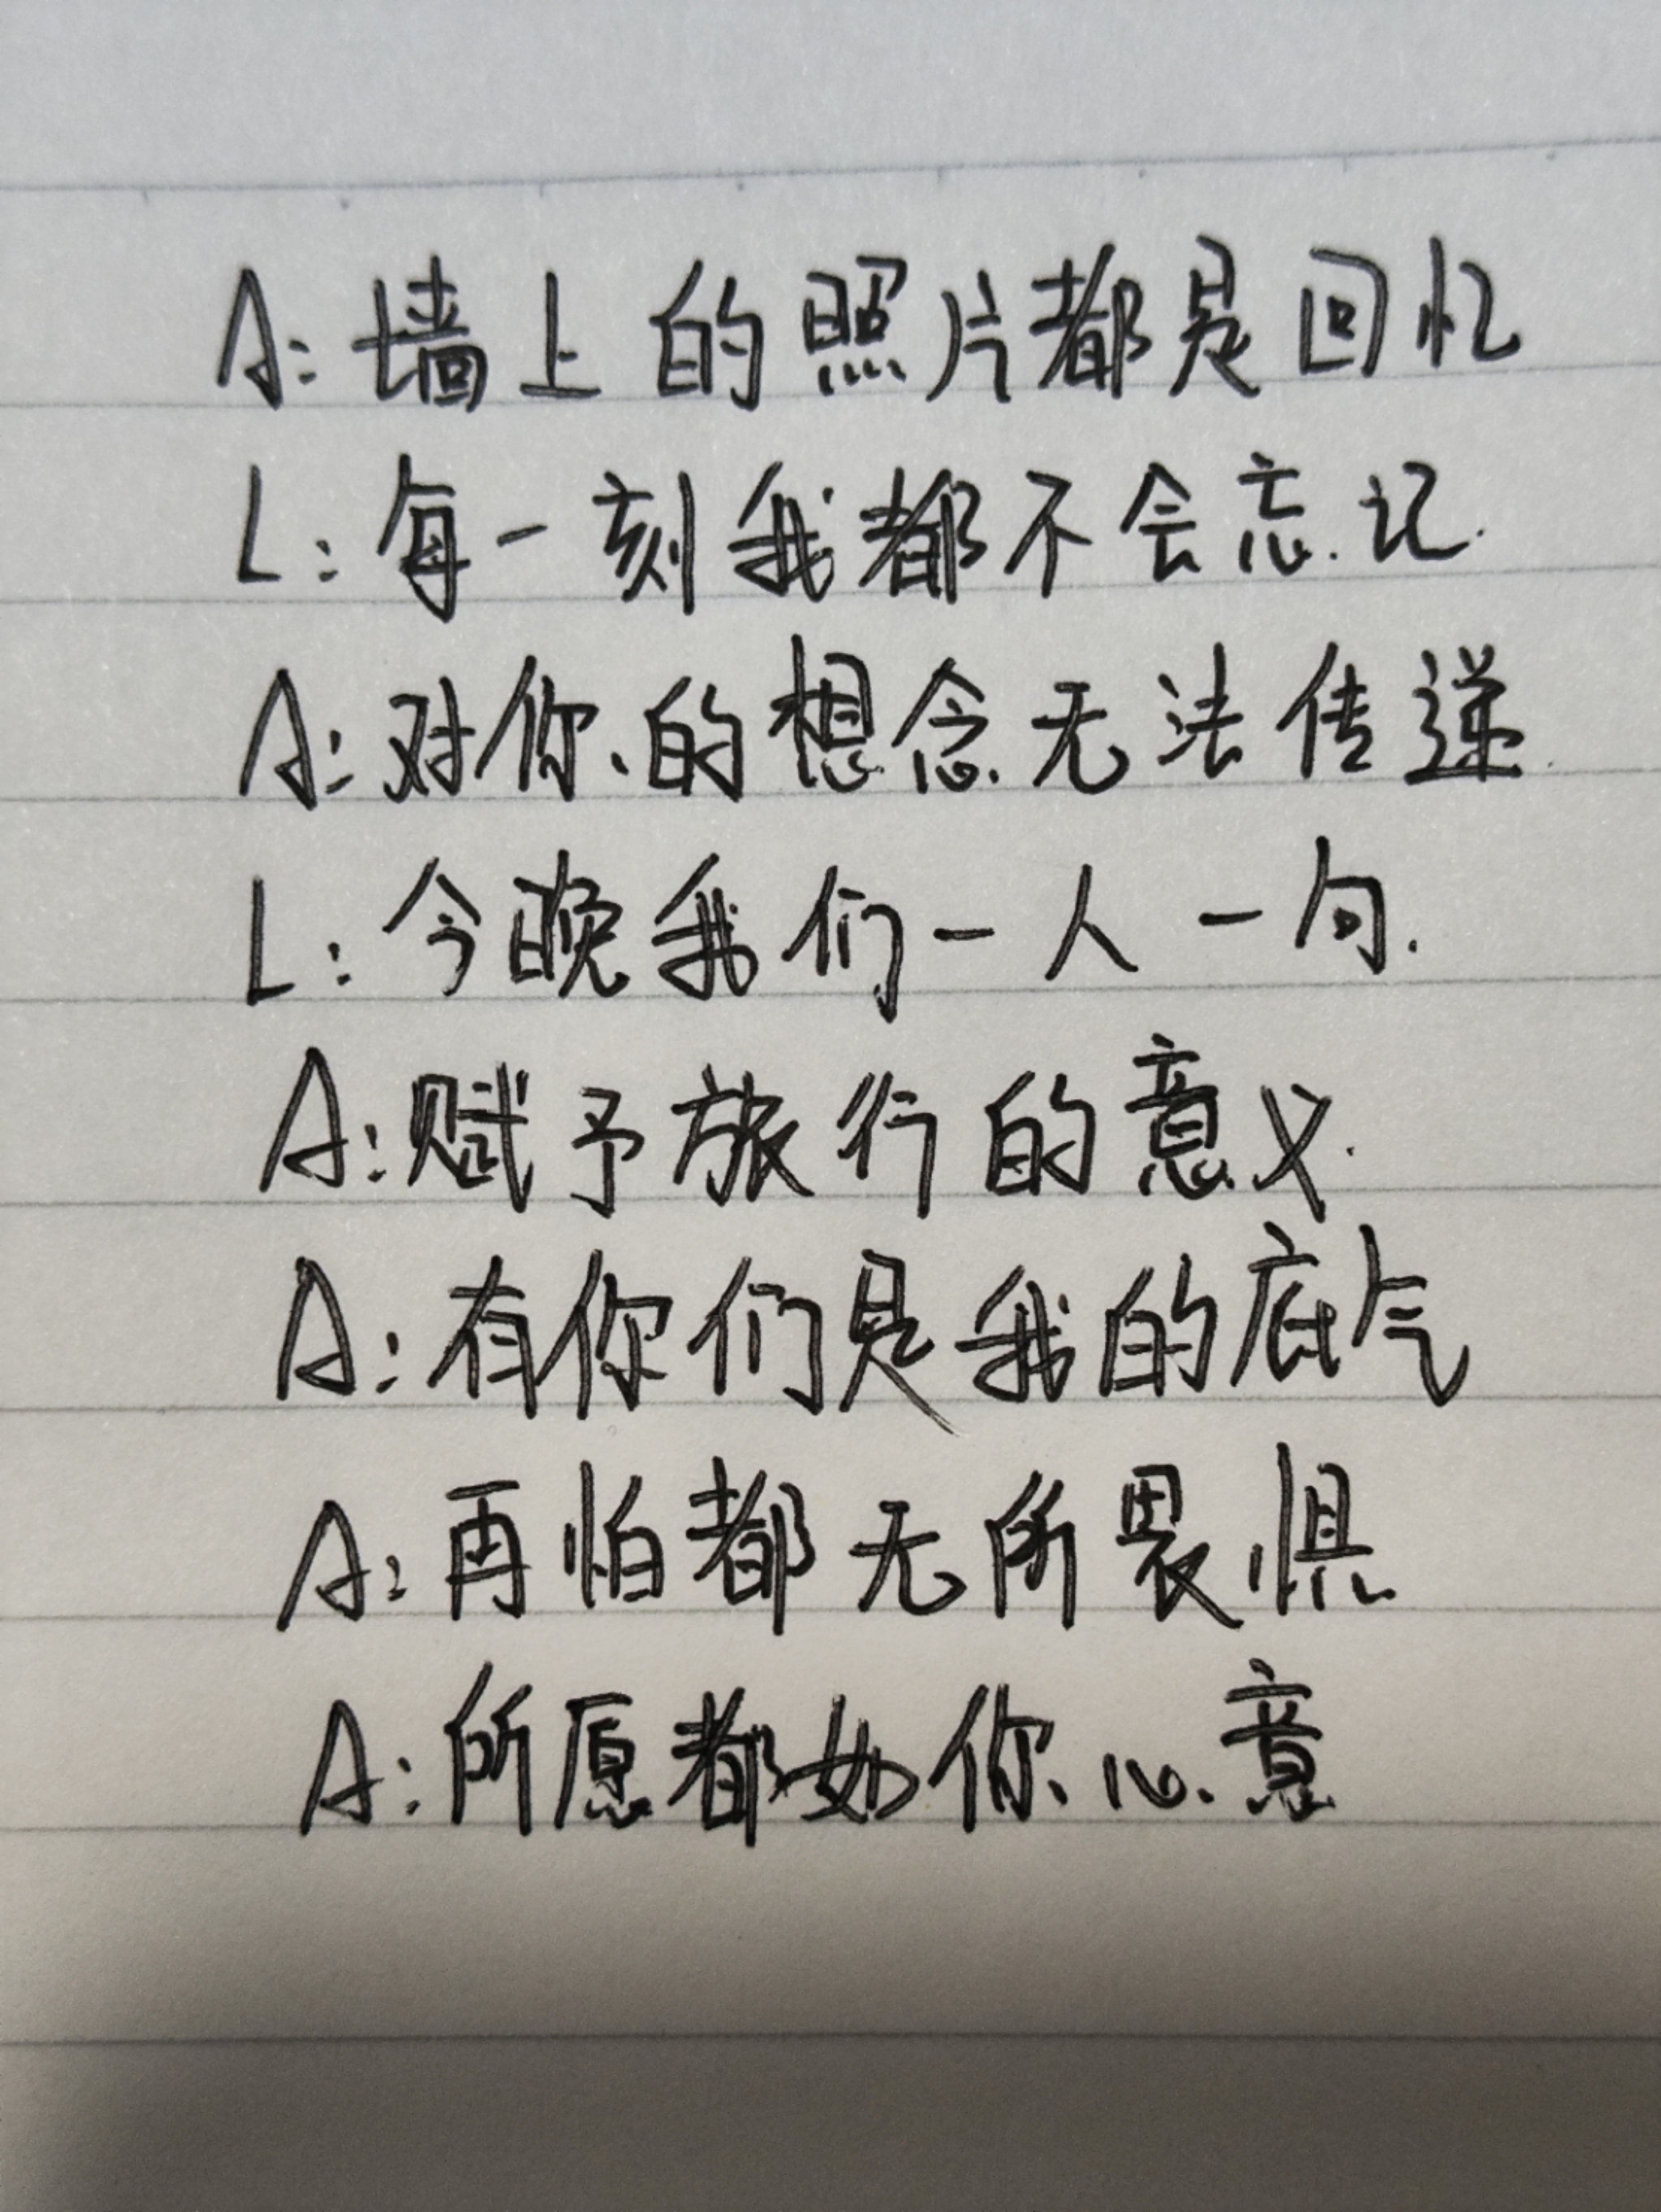 A:墙上的照片都是回忆
L:每一刻我都不会忘记.
A:对你的想念无法传递.
L:今晚我们一人一句.
A:赋予旅行的意义.
A:有你们是我的底气
A:再怕都无所畏惧
A:所愿都如你心意